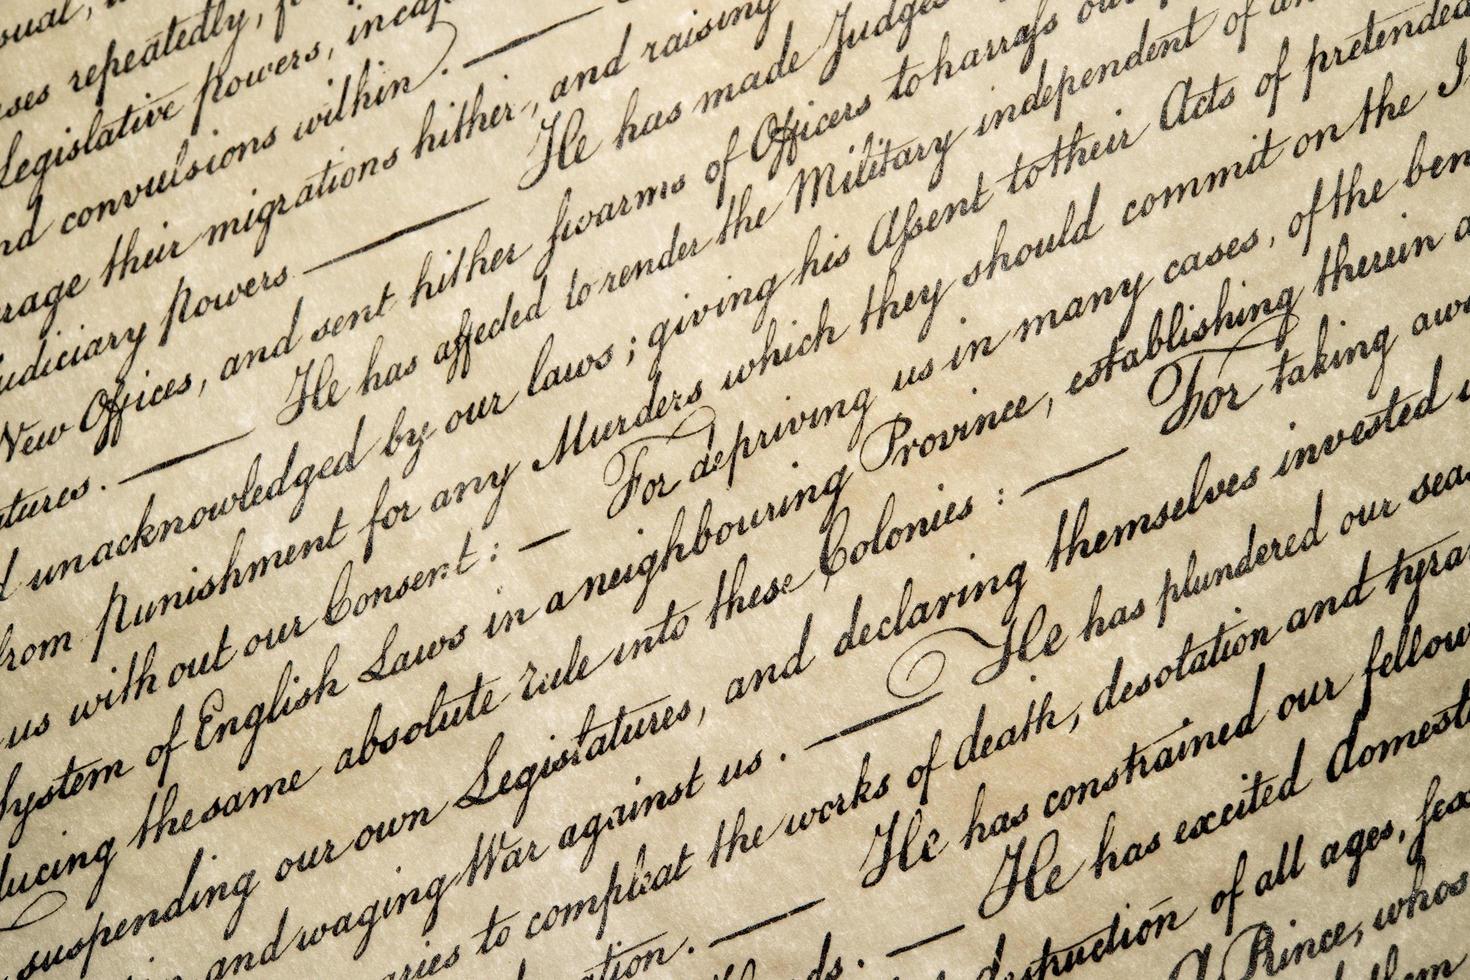 sual, u
ses repeatedly, f
Legislative powers, incap
nd convulsions within. —
rage their migrations hither, and raising
udiciary powers — He has made Judges
New Offices, and sent hither swarms of Officers to harrass our p
atures. — He has affected to render the Military independent of an
d unacknowledged by our laws; giving his Assent to their Acts of pretended
from punishment for any Murders which they should commit on the I
us without our Consent: — For depriving us in many cases, of the ben
System of English Laws in a neighbouring Province, establishing therein a
ducing the same absolute rule into these Colonies: — For taking awa
suspending our own Legislatures, and declaring themselves invested w
and waging War against us. — He has plundered our seas
aries to compleat the works of death, desolation and tyra
ation. — He has constrained our fellow
ds. — He has excited domest
destruction of all ages, sex
A Prince, whos
them